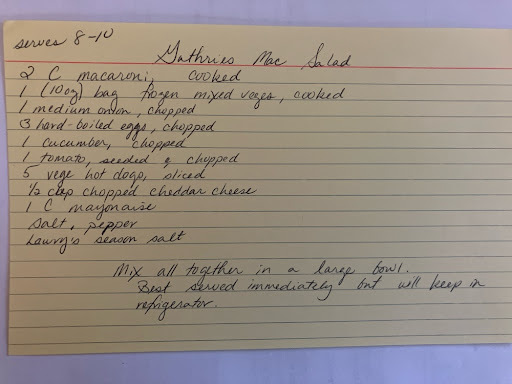 serves 8-10
Guthries Mac Salad
2 C macaroni, cooked
1 (10oz) bag frozen mixed veges, cooked
1 medium onion, chopped
3 hard-boiled eggs, chopped
1 cucumber, chopped
1 tomato, seeded & chopped
5 vege hot dogs, sliced
1/2 cup chopped cheddar cheese
1 C mayonaise
salt, pepper
Lawry's season salt
Mix all together in a large bowl.
Best served immediately but will keep in
refrigerator.